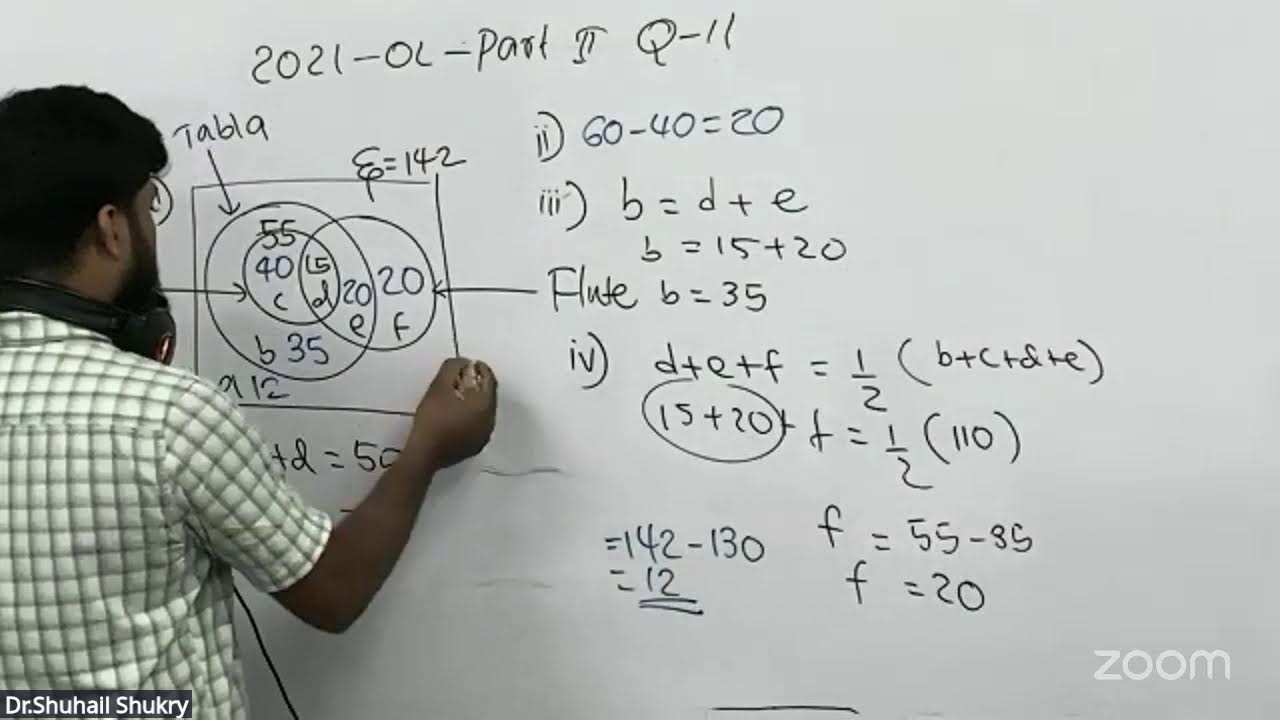 2021-OL-Part II Q-11
Tabla
ξ=142
55
40
15
c
d
20
20
e
f
b 35
a 12
+d = 50
ii) 60-40=20
iii) b = d + e
b = 15+20
Flute b = 35
iv) d+e+f = 1/2 (b+c+d+e)
15+20+ f = 1/2 (110)
=142-130
=12
f = 55-35
f = 20
zoom
Dr.Shuhail Shukry